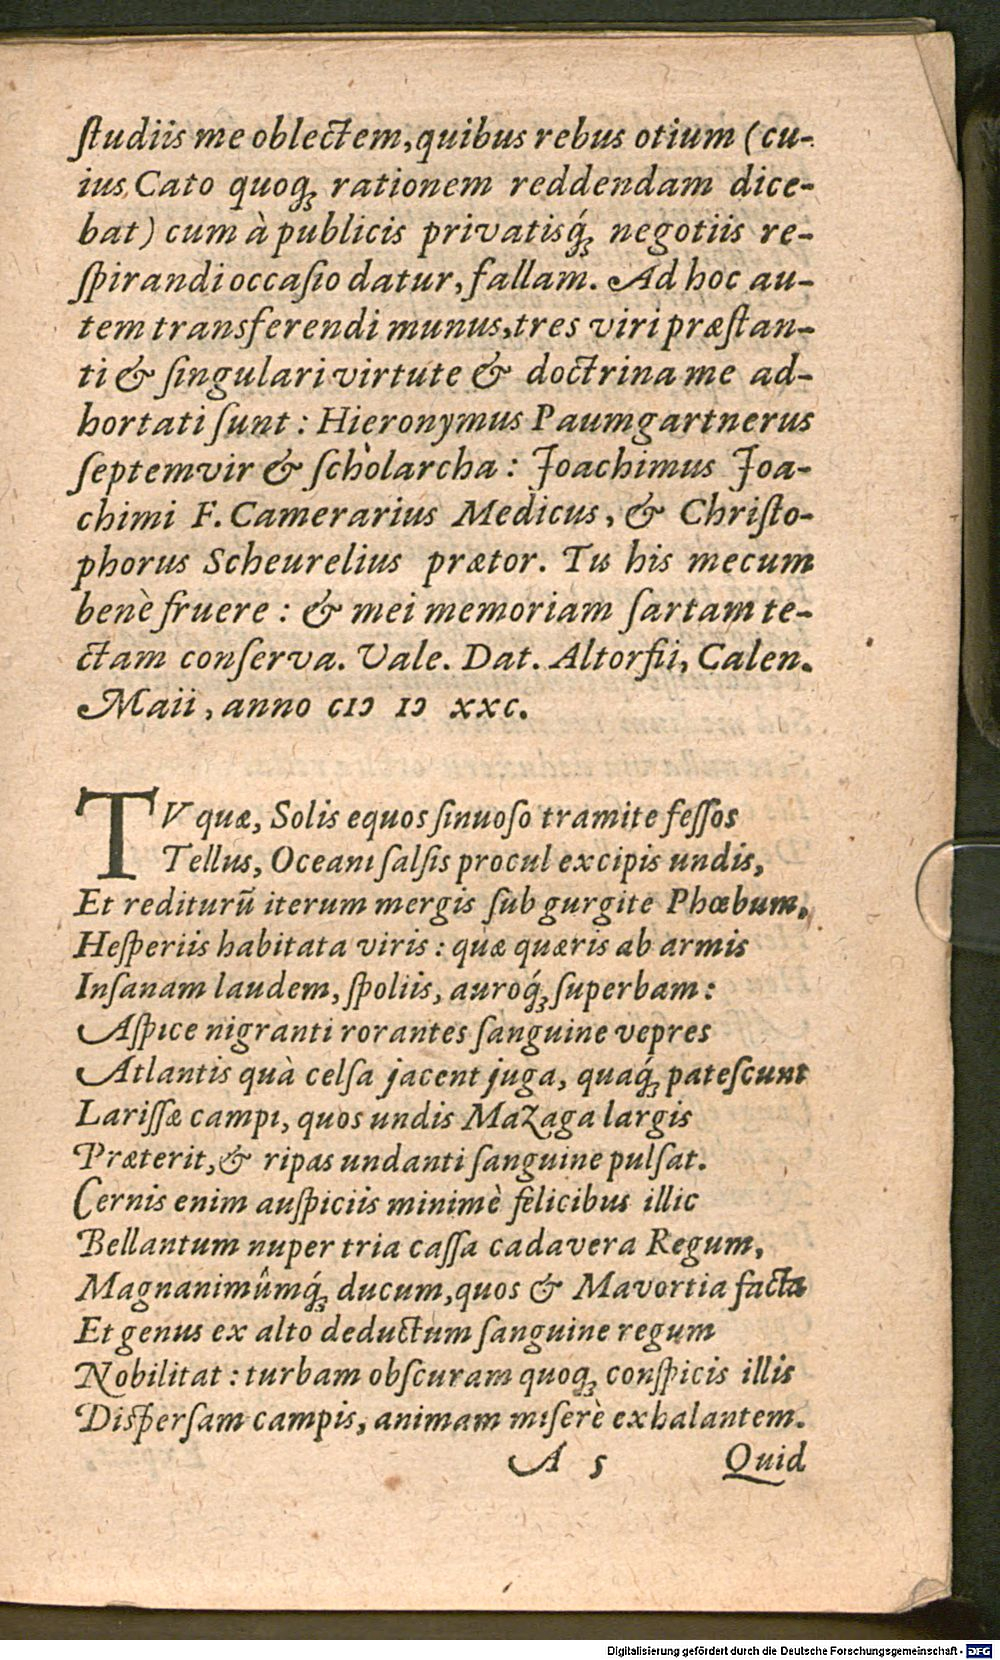 ſtudiis me oblectem, quibus rebus otium (cu-
ius Cato quoq́ꝫ rationem reddendam dice-
bat) cum à publicis privatisq́ꝫ negotiis re-
ſpirandi occaſio datur, fallam. Ad hoc au-
tem transferendi munus, tres viri præſtan-
ti & ſingulari virtute & doctrina me ad-
hortati ſunt: Hieronymus Paumgartnerus
ſeptemvir & ſcholarcha: Joachimus Joa-
chimi F. Camerarius Medicus, & Chriſto-
phorus Scheurelius prætor. Tu his mecum
benè fruere: & mei memoriam ſartam te-
ctam conſerva. Vale. Dat. Altorfii, Calen.
Maii, anno CIↃ IↃ XXC.
TV quæ, Solis equos ſinuoſo tramite feſſos
Tellus, Oceani ſalſis procul excipis undis,
Et rediturũ iterum mergis ſub gurgite Phœbum,
Heſperiis habitata viris: quæ quæris ab armis
Inſanam laudem, ſpoliis, auroq́ꝫ ſuperbam:
Aſpice nigranti rorantes ſanguine vepres
Atlantis quà celſa jacent juga, quaq́ꝫ pateſcunt
Lariſſæ campi, quos undis Mazaga largis
Præterit, & ripas undanti ſanguine pulſat.
Cernis enim auſpiciis minimè felicibus illic
Bellantum nuper tria caſſa cadavera Regum,
Magnanimûmq́ꝫ ducum, quos & Mavortia facta
Et genus ex alto deductum ſanguine regum
Nobilitat: turbam obſcuram quoqꝫ conſpicis illis
Diſperſam campis, animam miſerè exhalantem.
A 5 Quid
Digitalisierung gefördert durch die Deutsche Forschungsgemeinschaft - DFG